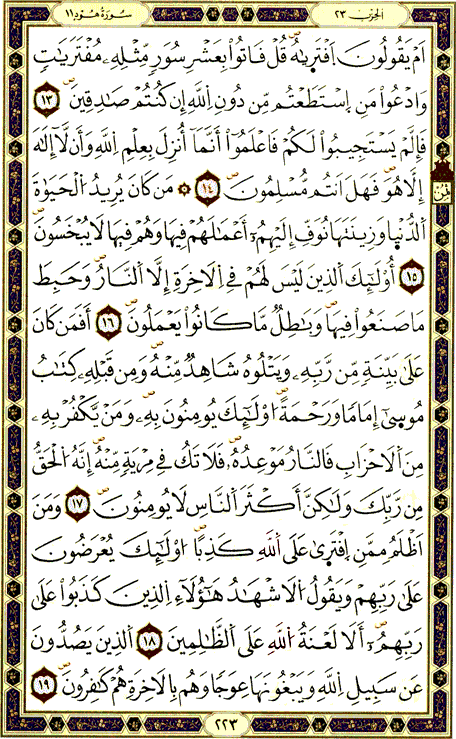 الحزب ٢٣
سورة هود ١١
اَمْ يَقُولُونَ اَفْتَرِيٰهُ قُلْ فَاتُواْ بِعَشْرِ سُوَرٍ مِّثْلِهِۦ مُفْتَرَيَٰتٍ
وَادْعُواْ مَنِ اِسْتَطَعْتُم مِّن دُونِ اِللَّهِ إِن كُنتُمْ صَٰدِقِينَ ١٣
فَإِلَّمْ يَسْتَجِيبُواْ لَكُمْ فَاعْلَمُوٓاْ أَنَّمَآ أُنزِلَ بِعِلْمِ اِللَّهِ وَأَن لَّآ إِلَٰهَ
إِلَّا هُوَ فَهَلَ اَنتُم مُّسْلِمُونَ ١٤ ۞ مَن كَانَ يُرِيدُ اُلْحَيَوٰةَ
ثمن
اَلدُّنْيَا وَزِينَتَهَا نُوَفِّ إِلَيْهِمُۥٓ أَعْمَٰلَهُمْ فِيهَا وَهُمْ فِيهَا لَا يُبْخَسُونَ
١٥ أُوْلَٰٓئِكَ اَلذِينَ لَيْسَ لَهُمْ فِے اِلَاخِرَةِ إِلَّا اَلنَّارُ وَحَبِطَ
مَا صَنَعُواْ فِيهَا وَبَٰطِلٌ مَّا كَانُواْ يَعْمَلُونَ ١٦ أَفَمَن كَانَ
عَلَىٰ بَيِّنَةٍ مِّن رَّبِّهِۦ وَيَتْلُوهُ شَاهِدٌ مِّنْهُ وَمِن قَبْلِهِۦ كِتَٰبُ
مُوسَىٰٓ إِمَامًا وَرَحْمَةً اُوْلَٰٓئِكَ يُومِنُونَ بِهِۦ وَمَنْ يَّكْفُرْ بِهِۦ
مِنَ اَلَاحْزَابِ فَالنَّارُ مَوْعِدُهُۥ فَلَا تَكُ فِے مِرْيَةٍ مِّنْهُ إِنَّهُ اُلْحَقُّ
مِن رَّبِّكَ وَلَٰكِنَّ أَكْثَرَ اَلنَّاسِ لَا يُومِنُونَ ١٧ وَمَنَ
اَظْلَمُ مِمَّنِ اِفْتَرَىٰ عَلَى اَللَّهِ كَذِبًا اُوْلَٰٓئِكَ يُعْرَضُونَ
عَلَىٰ رَبِّهِمْ وَيَقُولُ اُلَاشْهَٰدُ هَٰٓؤُلَآءِ اِلذِينَ كَذَبُواْ عَلَىٰ
رَبِّهِمُۥٓ أَلَا لَعْنَةُ اُللَّهِ عَلَى اَلظَّٰلِمِينَ ١٨ اَلذِينَ يَصُدُّونَ
عَن سَبِيلِ اِللَّهِ وَيَبْغُونَهَا عِوَجًا وَهُم بِالَاخِرَةِ هُمْ كَٰفِرُونَ ١٩
٢٢٣